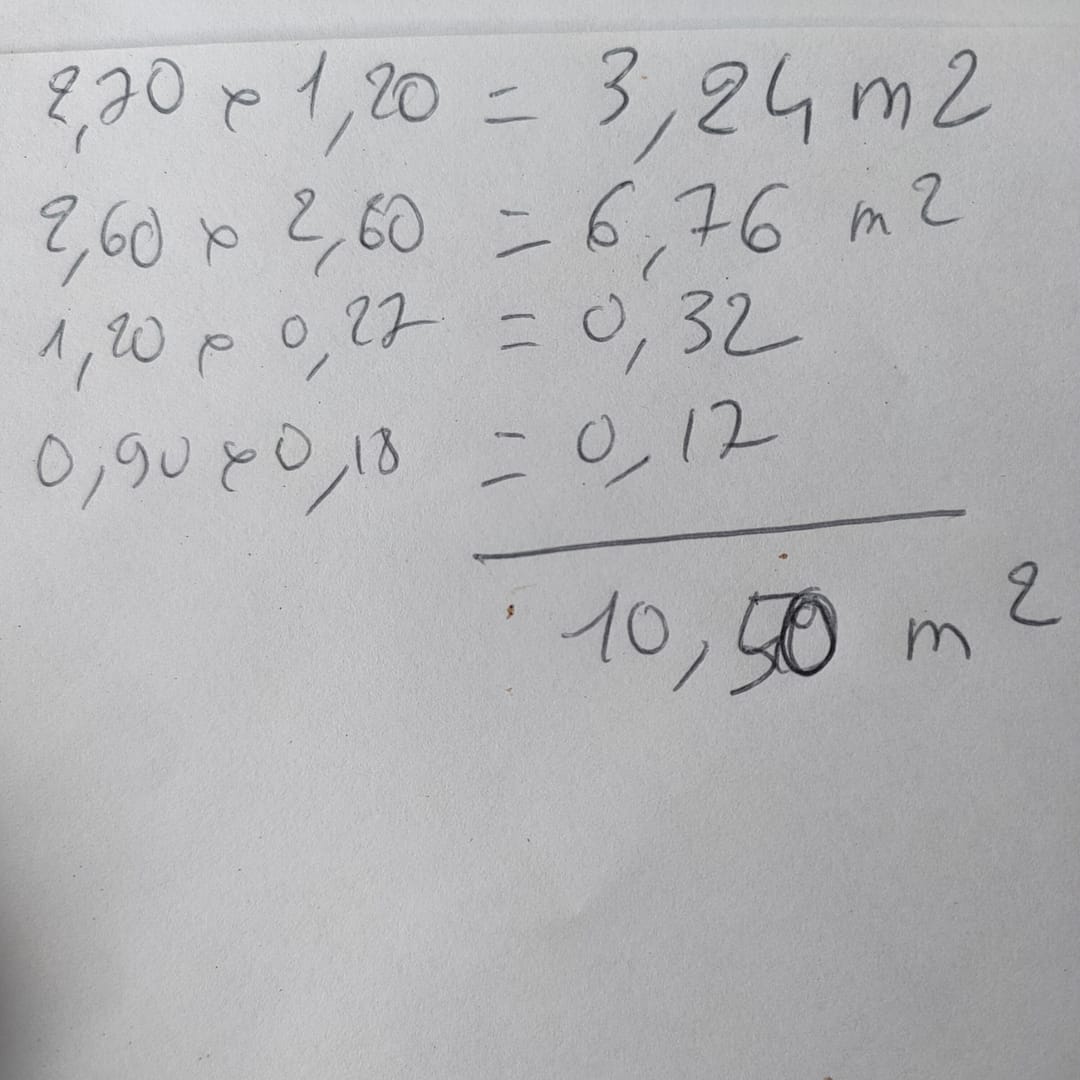 2,70 x 1,20 = 3,24 m2
2,60 x 2,60 = 6,76 m2
1,20 x 0,27 = 0,32
0,90 x 0,18 = 0,17
10,50 m2